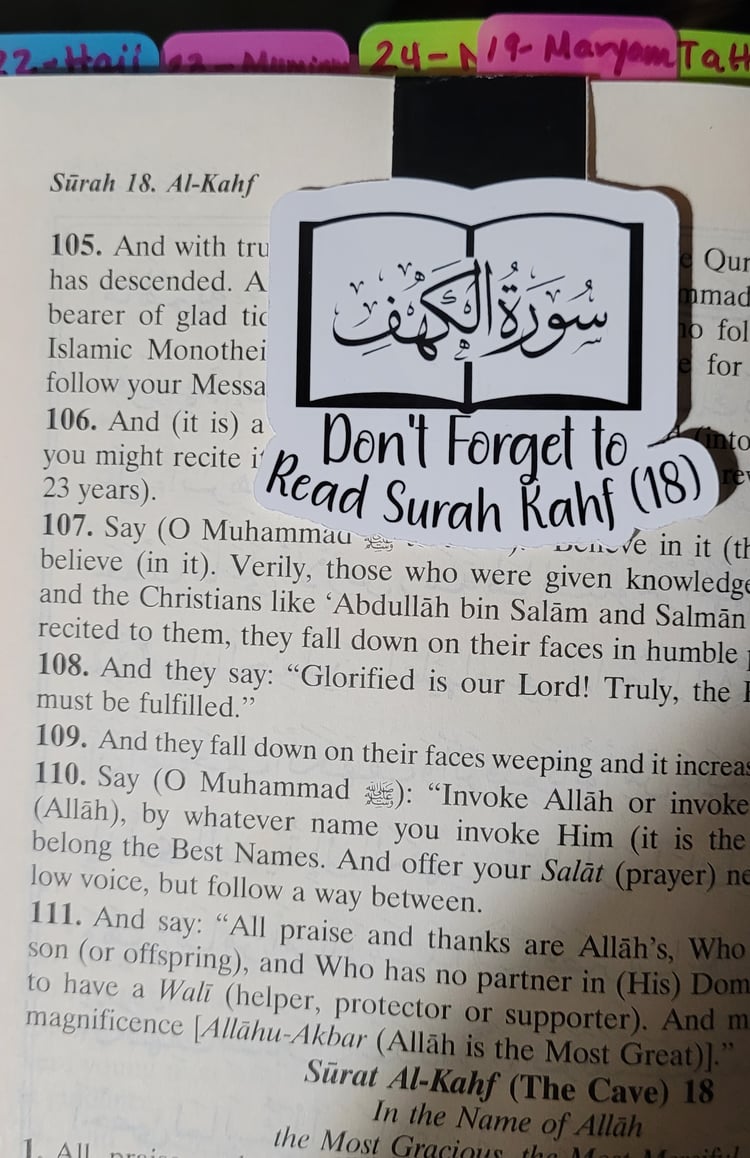 22-Hajj 23-Muminun 24-N 19-Maryam TaH
Sūrah 18. Al-Kahf
سُورَةُ الْكَهْفِ
Don't Forget to
Read Surah Kahf (18)
105. And with tru Qur
has descended. A mmad
bearer of glad tid o fol
Islamic Monothei for
follow your Messa
106. And (it is) a (into
you might recite it rev
23 years).
107. Say (O Muhammad ﷺ Believe in it (th
believe (in it). Verily, those who were given knowledge
and the Christians like ‘Abdullāh bin Salām and Salmān
recited to them, they fall down on their faces in humble
108. And they say: “Glorified is our Lord! Truly, the
must be fulfilled.”
109. And they fall down on their faces weeping and it increas
110. Say (O Muhammad ﷺ): “Invoke Allāh or invoke
(Allāh), by whatever name you invoke Him (it is the
belong the Best Names. And offer your Salāt (prayer) ne
low voice, but follow a way between.
111. And say: “All praise and thanks are Allāh’s, Who
son (or offspring), and Who has no partner in (His) Dom
to have a Walī (helper, protector or supporter). And m
magnificence [Allāhu-Akbar (Allāh is the Most Great)].”
Sūrat Al-Kahf (The Cave) 18
In the Name of Allāh
the Most Gracious, the Most Merciful
1. All